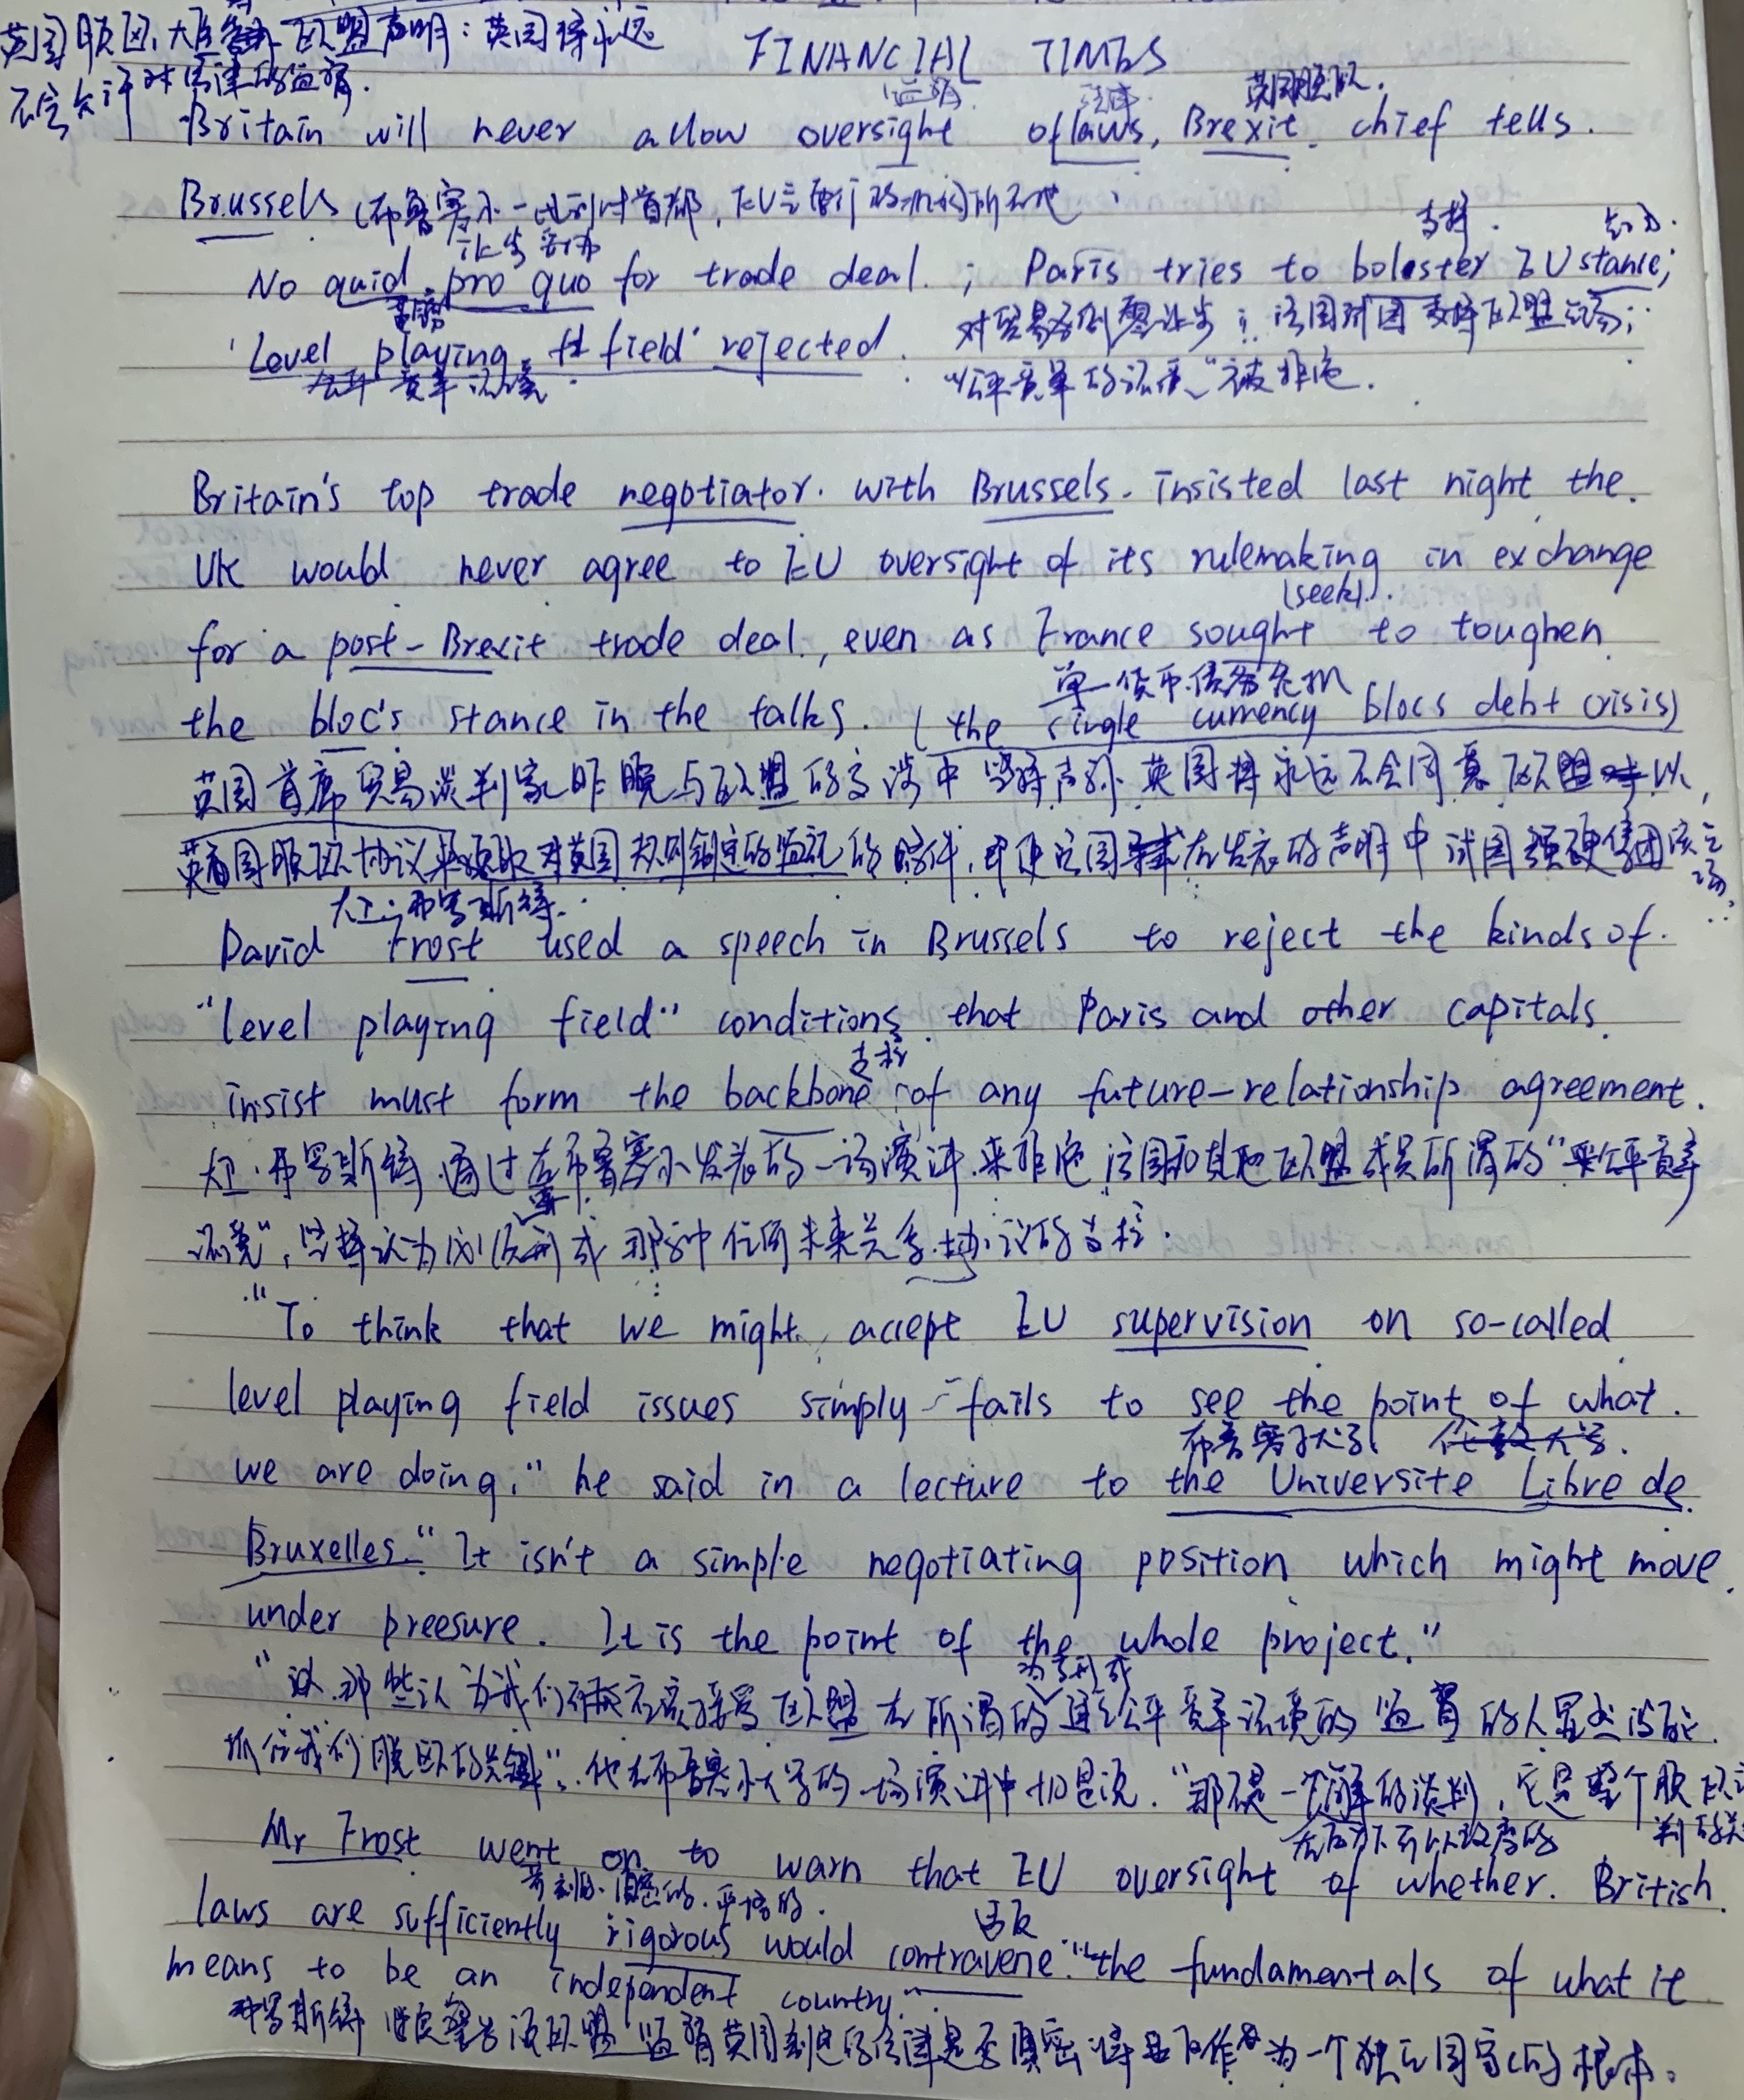 英国脱欧大臣 欧盟声明：英国将永远
FINANCIAL TIMES
不会允许对法律的监督.
监督. 法律. 英国脱欧.
Britain will never allow oversight of laws, Brexit chief tells.
Brussels (布鲁塞尔-比利时首都, EU主要行政机构所在地
让步 支撑. 立场.
No quid pro quo for trade deal. ; Paris tries to bolester EU stance;
'Level playing field' rejected. 对贸易 让步; 法国 支持欧盟立场;
公平 竞争 环境 "公平竞争的环境"被拒绝.
Britain's top trade negotiator. with Brussels. insisted last night the.
UK would never agree to EU oversight of its rulemaking in exchange
(seek).
for a post-Brexit trade deal., even as France sought to toughen
单一货币债务危机
the bloc's stance in the talks. (the single currency blocs debt crisis)
英国首席贸易谈判家昨晚与欧盟的交涉中坚持声称 英国将永远不会同意欧盟 以,
英国脱欧协议来换取对英国规则制定的监视的条件, 即使法国 在发表的声明中试图强硬集团该立场.
大卫·弗罗斯特.
David Frost used a speech in Brussels to reject the kinds of.
"level playing field" conditions that Paris and other capitals.
支柱
insist must form the backbone of any future-relationship agreement.
大卫·弗罗斯特 通过在布鲁塞尔发表的一场演讲.来拒绝 法国和其他欧盟成员所谓的"公平竞争
环境", 坚持认为 任何未来关系协议的支柱.
"To think that we might accept EU supervision on so-called
level playing field issues simply fails to see the point of what.
布鲁塞尔大学
we are doing," he said in a lecture to the Universite Libre de
Bruxelles." It isn't a simple negotiating position which might move
under preesure. It is the point of the whole project."
"那些认为我们 应该接受欧盟在所谓的 公平竞争环境的 监督 的人显然没能
抓住我们脱欧的关键", 他在布鲁塞尔大学的一场演讲中 说. "那不是一个简单的谈判, 它是整个脱欧谈
在压力下可以改变的 判的关
Mr Frost went on to warn that EU oversight of whether. British
苛刻的. 慎密的. 严格的. 违反
laws are sufficiently rigorous would contravene "the fundamentals of what it
means to be an independent country."
弗罗斯特 警告 欧盟 监督英国制定的法律是否 作为一个独立国家的根本。